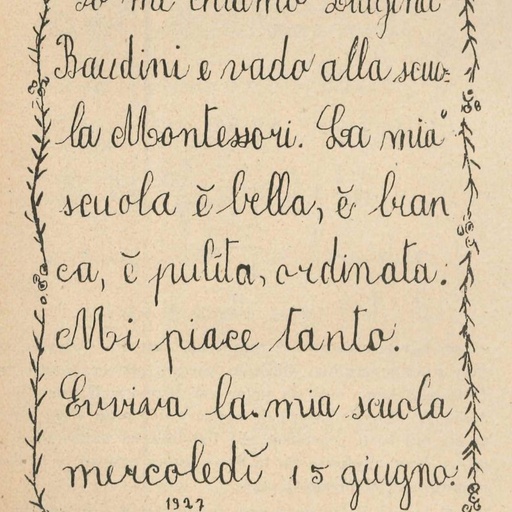 Io mi chiamo Luigina
Baudini e vado alla scuo-
la Montessori. La mia
scuola è bella, è bian
ca, è pulita, ordinata.
Mi piace tanto.
Evviva la mia scuola
mercoledì 15 giugno.
1927